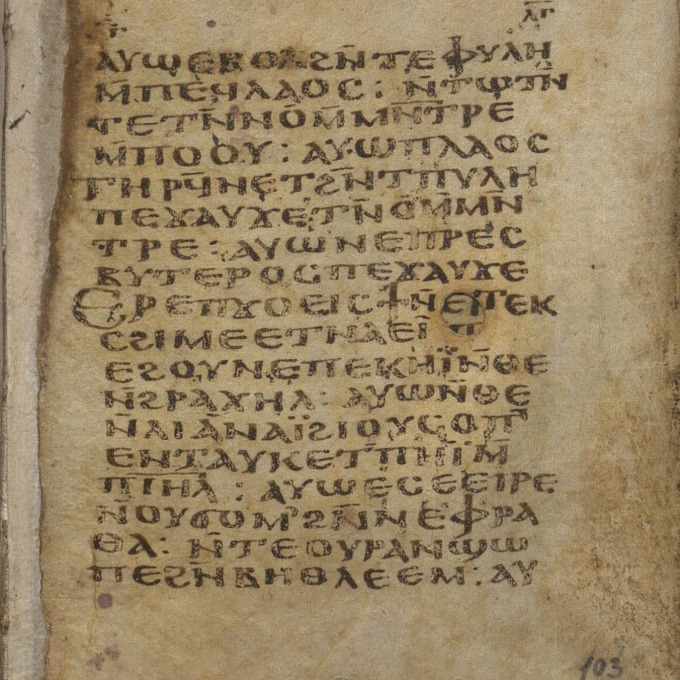 ⲗⲅ
ⲁⲩϣ ⲉⲃⲟⲗ ϩⲛ̄ ⲧⲉϥⲩⲗⲏ
ⲙ̄ⲡⲉϥⲗⲁⲟⲥ : ⲛ̄ⲧⲱⲧⲛ̄
ⲧⲉⲧⲛ̄ⲛⲟ ⲙ̄ⲙⲛ̄ⲧⲣⲉ
ⲙ̄ⲡⲟⲟⲩ : ⲁⲩⲱ ⲡⲗⲁⲟⲥ
ⲧⲏⲣϥ̄ ⲛⲉⲧϩⲛ̄ ⲧⲡⲩⲗⲏ
ⲡⲉϫⲁⲩ ϫⲉ ⲧⲛ̄ⲟ ⲙ̄ⲙⲛ̄
ⲧⲣⲉ : ⲁⲩⲱ ⲛⲉⲡⲣⲉⲥ
ⲃⲩⲧⲉⲣⲟⲥ ⲡⲉϫⲁⲩ ϫⲉ
ⲉⲣⲉ ⲡϫⲟⲉⲓⲥ ϯ ⲛ̄ⲧⲉⲕ
ⲥϩⲓⲙⲉ ⲉⲧⲛⲁⲉⲓ
ⲉϩⲟⲩⲛ ⲉⲡⲉⲕⲏⲓ̈ ⲛ̄ⲑⲉ
ⲛ̄ϩⲣⲁⲭⲏⲗ : ⲁⲩⲱ ⲛ̄ⲑⲉ
ⲛ̄ⲗⲓⲁ ⲛⲁⲓ̈ ϩⲓ ⲟⲩⲥⲟⲡ
ⲉⲛⲧⲁⲩⲕⲉⲧ ⲡⲏⲓ̈ ⲙ̄
ⲡⲓⲏⲗ̄ : ⲁⲩⲱ ⲉⲥⲉⲉⲓⲣⲉ
ⲛⲟⲩϭⲟⲙ ϩⲛ̄ ⲛⲉⲫⲣⲁ
ⲑⲁ : ⲛ̄ⲧⲉ ⲟⲩⲣⲁⲛ ϣⲱ
ⲡⲉ ϩⲛ̄ ⲃⲏⲑⲗⲉⲉⲙ : ⲁⲩ
103